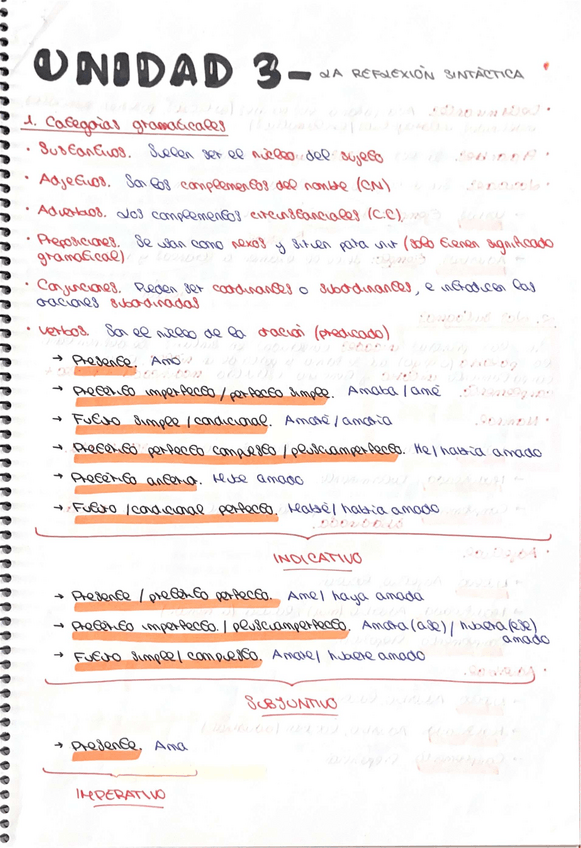 UNIDAD 3- LA REFLEXIÓN SINTÁCTICA
1. Categorías gramaticales
· Sustantivos. Suelen ser el núcleo del sujeto
· Adjetivos. Son los complementos del nombre (CN)
· Adverbios. Los complementos circunstanciales (C.C)
· Preposiciones. Se usan como nexos y sirven para unir (solo tienen significado
gramatical)
· Conjunciones. Pueden ser coordinantes o subordinantes, e introducen las
oraciones subordinadas
· Verbos. Son el núcleo de la oración (predicado)
→ Presente. Amo
→ Pretérito imperfecto / perfecto simple. Amaba / amé
→ Futuro simple / condicional. Amaré / amaría
→ Pretérito perfecto compuesto / pluscuamperfecto. He / había amado
→ Pretérito anterior. Hube amado
→ Futuro / condicional perfecto. Habré / habría amado
INDICATIVO
→ Presente / pretérito perfecto. Ame / haya amado
→ Pretérito imperfecto. / pluscuamperfecto. Amara (ase) / hubiera (ese)
amado
→ Futuro simple / compuesto. Amare / hubiere amado
SUBJUNTIVO
→ Presente. Ama
IMPERATIVO